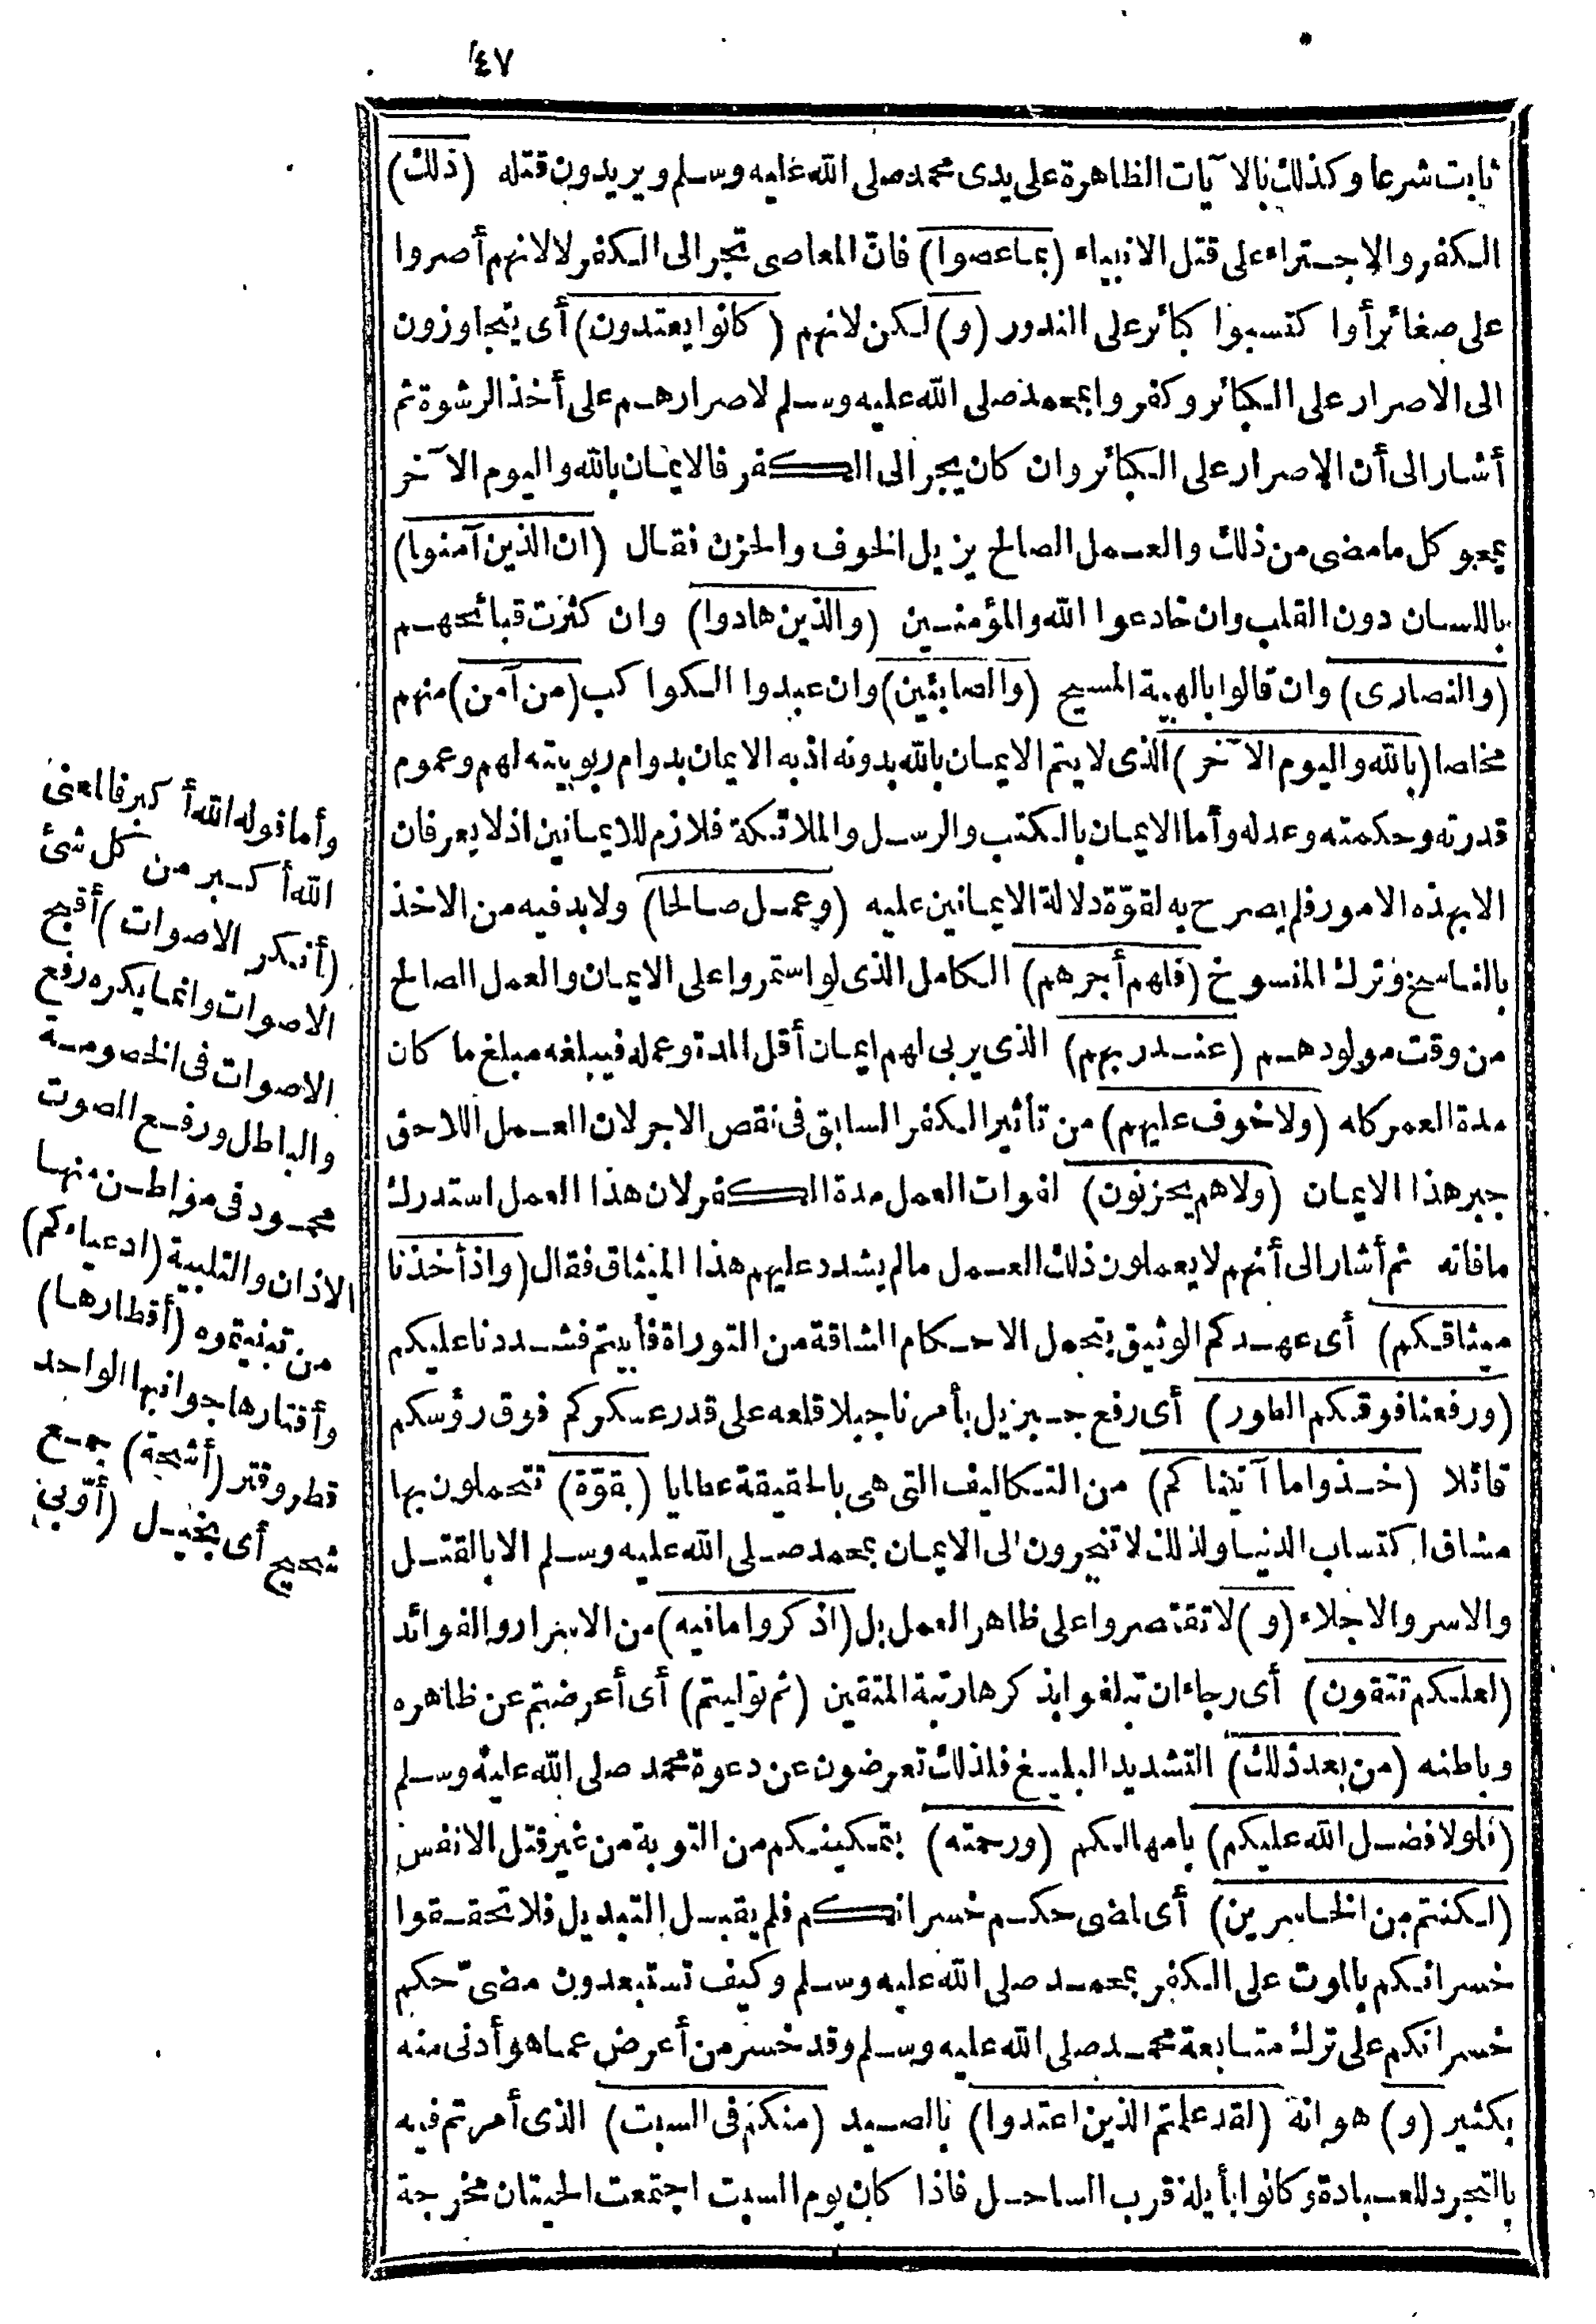 ٤٧
ثابت شرعا وكذلك بالآيات الظاهرة على يدى محمد صلى الله عليه وسلم ويريدون قتله (ذلك)
الكفر والاجتراء على قتل الانبياء (بما عصوا) فانّ المعاصى تجر الى الكفر لا لانهم أصروا
على صغائر أوا كتسبوا كبائر على الندور (و) لكن لانهم (كانوا يعتدون) أى يتجاوزون
الى الاصرار على الكبائر وكفروا بمحمد صلى الله عليه وسلم لاصرارهم على أخذ الرشوة ثم
أشار الى أن الاصرار على الكبائر وان كان يجر الى الكفر فالايمان بالله واليوم الآخر
يمحو كل ما مضى من ذلك والعمل الصالح يزيل الخوف والحزن فقال (ان الذين آمنوا)
باللسان دون القلب وان خادعوا الله والمؤمنين (والذين هادوا) وان كثرت قبائحهم
(والنصارى) وان قالوا بالهية المسيح (والصابئين) وان عبدوا الكواكب (من آمن) منهم
مخلصا (بالله واليوم الآخر) الذى لا يتم الايمان بالله بدونه اذ به الايمان بدوام ربوبيته لهم وعموم
قدرته وحكمته وعدله وأما الايمان بالكتب والرسل والملائكة فلازم للايمانين اذ لا يعرفان
الا بهذه الامور فلم يصرح به لقوّة دلالة الايمانين عليه (وعمل صالحا) ولا بد فيه من الاخذ
بالناسخ وترك المنسوخ (فلهم أجرهم) الكامل الذى لو استمروا على الايمان والعمل الصالح
من وقت مولودهم (عند ربهم) الذى يربى لهم ايمان أقل المدة وعمله فيبلغه مبلغ ما كان
مدة العمر كله (ولا خوف عليهم) من تأثير الكفر السابق فى نقص الاجر لان العمل اللاحق
جبر هذا الايمان (ولا هم يحزنون) لفوات العمل مدة الكفر لان هذا العمل استدرك
ما فاته ثم أشار الى أنهم لا يعملون ذلك العمل ما لم يشدد عليهم هذا الميثاق فقال (واذ أخذنا
ميثاقكم) أى عهدكم الوثيق بتحمل الاحكام الشاقة من التوراة فأبيتم فشددنا عليكم
(ورفعنا فوقكم الطور) أى رفع جبريل بأمرنا جبلا قلعه على قدر عسكركم فوق رؤسكم
قائلا (خذوا ما آتيناكم) من التكاليف التى هى بالحقيقة عطايا (بقوّة) تتحملون بها
مشاق اكتساب الدنيا ولذلك لا تنجرون الى الايمان بمحمد صلى الله عليه وسلم الا بالقتل
والاسر والاجلاء (و) لا تقتصروا على ظاهر العمل بل (اذكروا ما فيه) من الاسرار والفوائد
(لعلكم تتقون) أى رجاء ان تبلغوا بذكرها رتبة المتقين (ثم توليتم) أى أعرضتم عن ظاهره
وباطنه (من بعد ذلك) التشديد البليغ فلذلك تعرضون عن دعوة محمد صلى الله عليه وسلم
(فلولا فضل الله عليكم) بامهالكم (ورحمته) بتمكينكم من التوبة من غير قتل الانفس
(لكنتم من الخاسرين) أى لمضى حكم خسرانكم فلم يقبل التبديل فلا تحققوا
خسرانكم بالموت على الكفر بمحمد صلى الله عليه وسلم وكيف تستبعدون مضىّ حكم
خسرانكم على ترك متابعة محمد صلى الله عليه وسلم وقد خسر من أعرض عما هو أدنى منه
بكثير (و) هو انه (لقد علمتم الذين اعتدوا) بالصيد (منكم فى السبت) الذى أمرتم فيه
بالتجرد للعبادة وكانوا بأيلة قرب الساحل فاذا كان يوم السبت اجتمعت الحيتان مخرجة
وأما قوله الله أكبر فالمعنى
الله أكبر من كل شئ
(أنكر الاصوات) أقبح
الاصوات وانما يكره رفع
الاصوات فى الخصومة
والباطل ورفع الصوت
محمود فى مواطن منها
الاذان والتلبية (ادعياءكم)
من تبنيتموه (أقطارها)
وأقتارها جوانبها الواحد
قطر وقتر (أشحة) جمع
شحيح أى بخيل (أوّبى